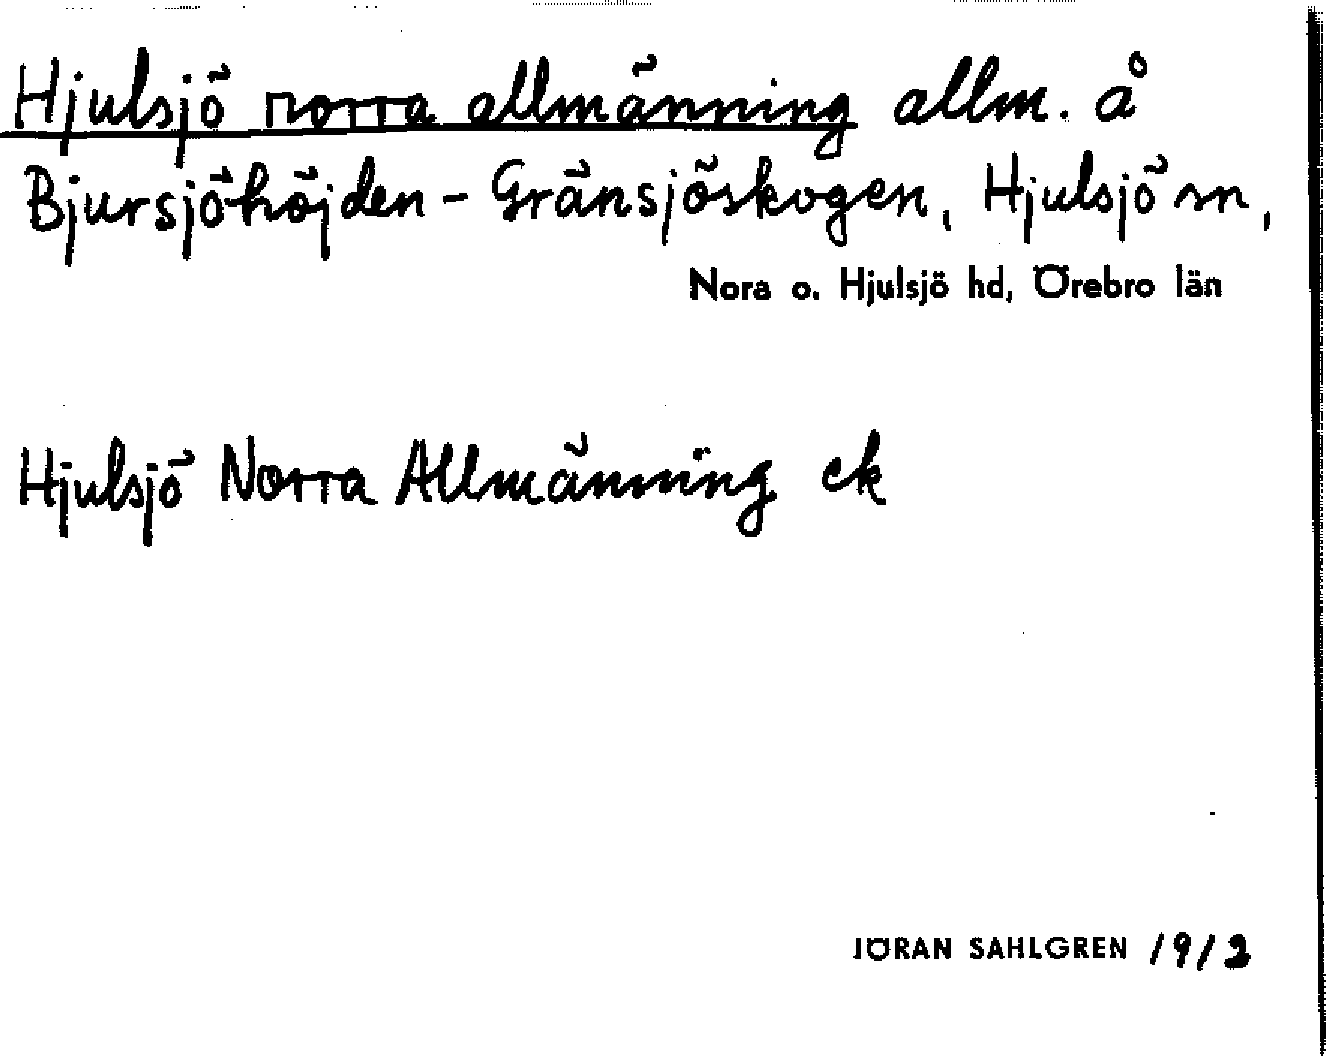 Hjulsjö norra allmänning allm. å
Bjursjöhöjden - Gränsjöskogen, Hjulsjö sn,
Nora o. Hjulsjö hd, Örebro län
Hjulsjö Norra Allmänning ek
JÖRAN SAHLGREN 1912